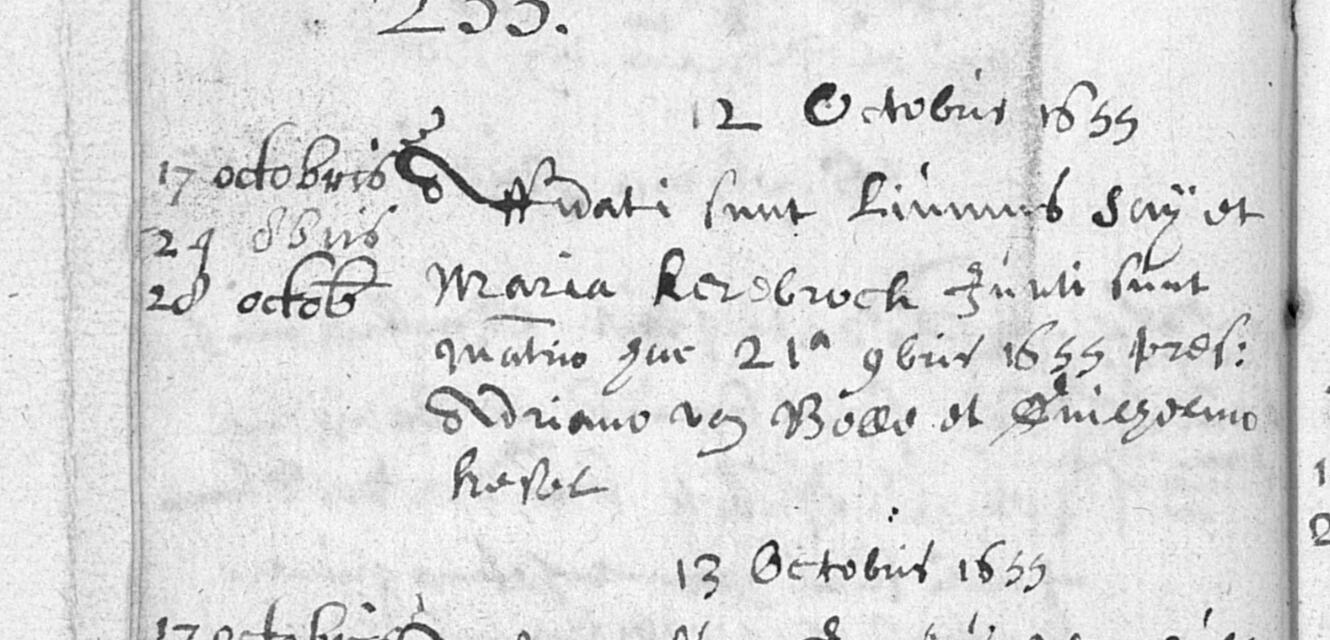 255.
12 Octobris 1655
17 octobris
24 8bris
28 octob
Affidati sunt Livinus Say et
Maria Kerebrock Juncti sunt
matrio que 21ª 9bris 1655 pres:
Adriano van Belle et Guilhelmo
Kesel
13 Octobris 1655
17 octobris